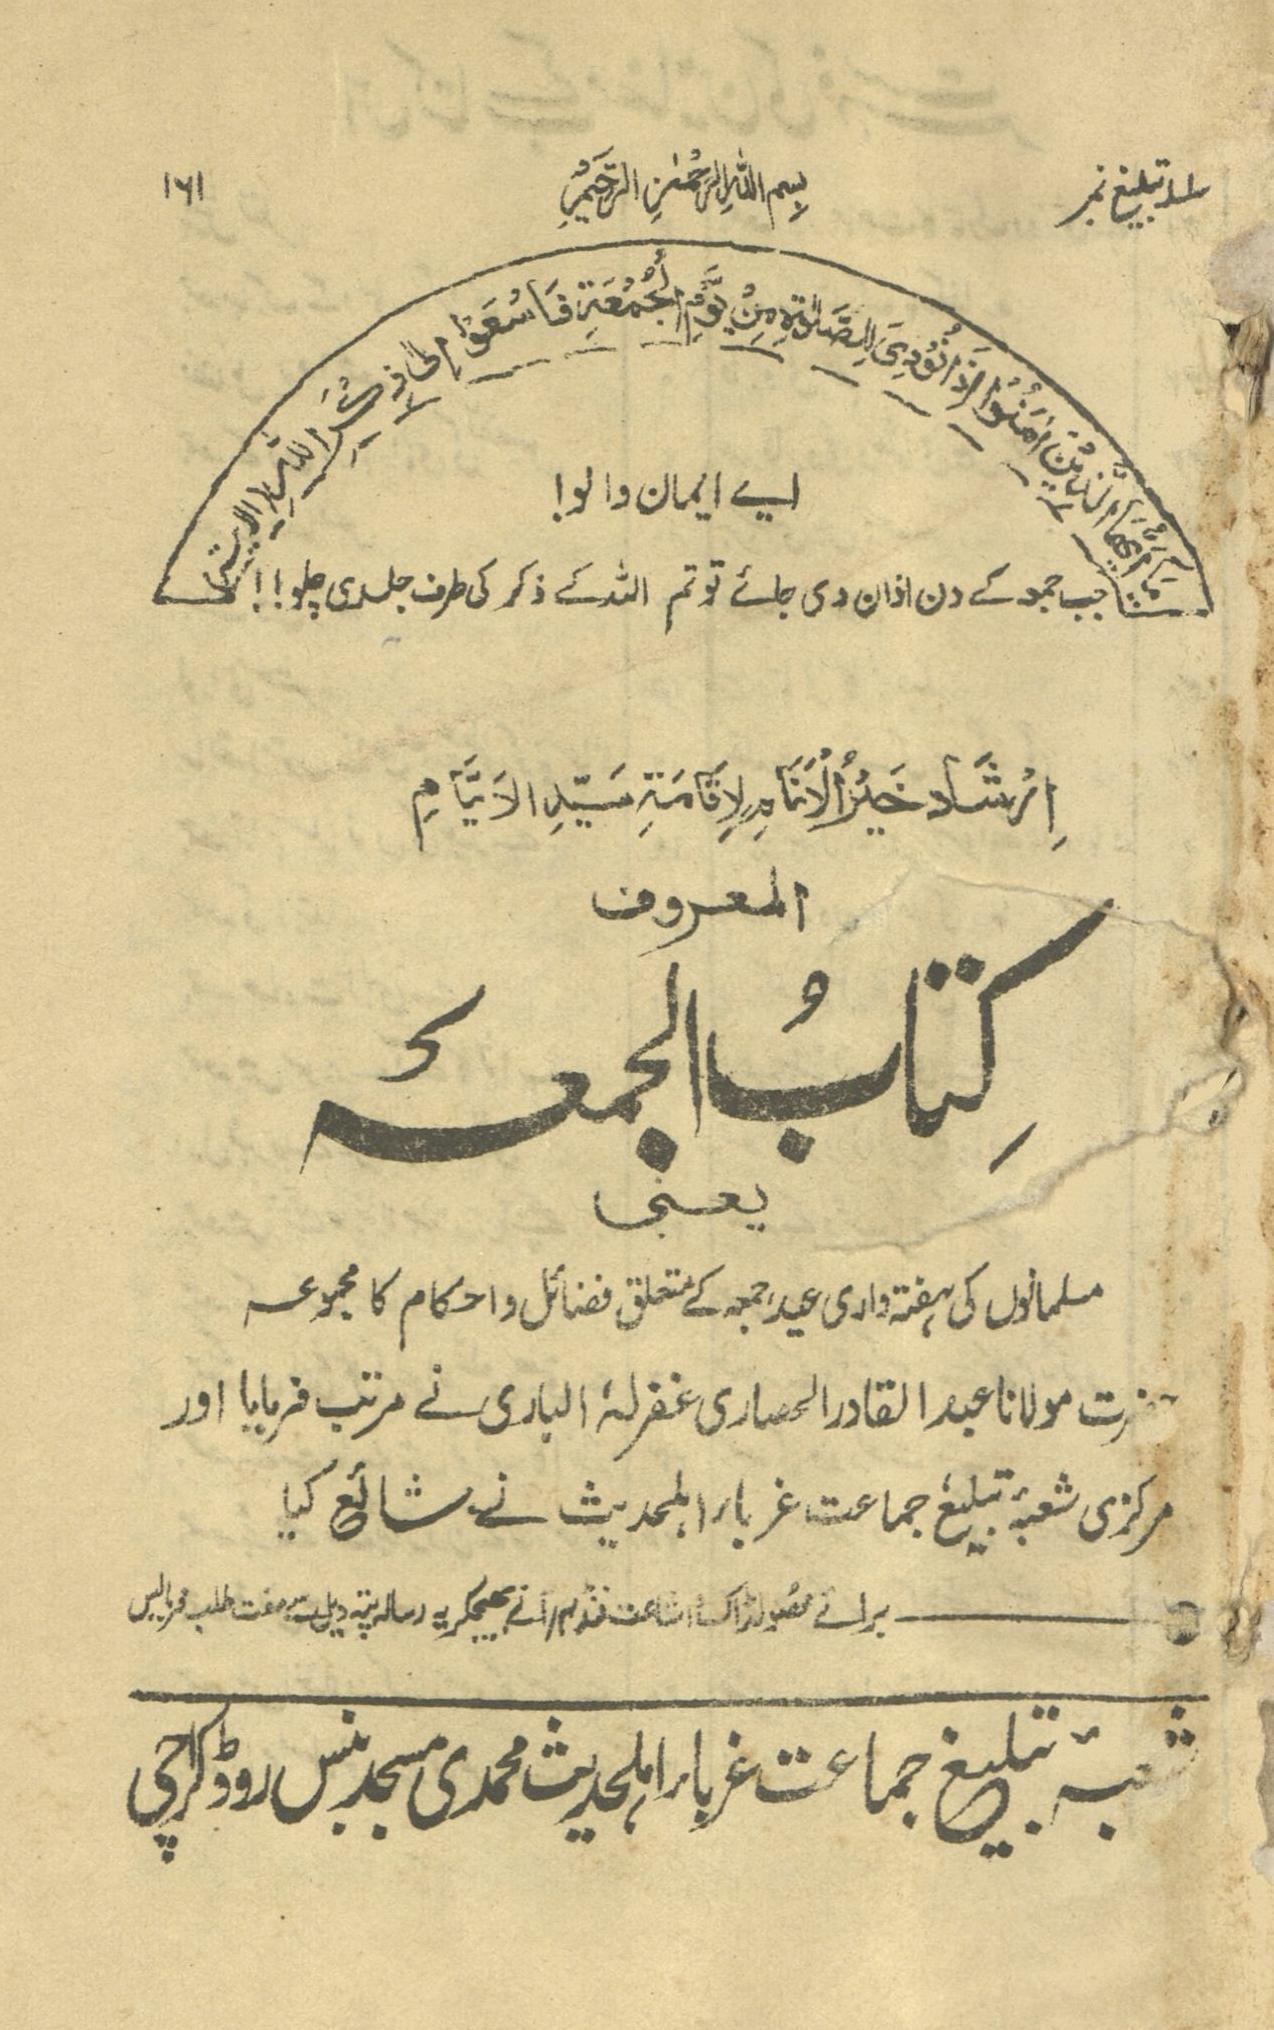 سلسلہ تبلیغ نمبر
بِسْمِ اللهِ الرَّحْمٰنِ الرَّحِيْمِ
۱۶۱
يٰۤاَيُّهَا الَّذِيْنَ اٰمَنُوْۤا اِذَا نُوْدِيَ لِلصَّلٰوةِ مِنْ يَّوْمِ الْجُمُعَةِ فَاسْعَوْا اِلٰى ذِكْرِ اللهِ الاية
ایے ایمان والو!
جب جمعہ کے دن اذان دی جائے تو تم اللہ کے ذکر کی طرف جلدی چلو!!
اِرْشَادُ خَيْرُ الْاَنَامِ لِاِقَامَةِ سَيِّدِ الْاَيَّامِ
المعروف
کِتابُ الجمعہ
یعنی
مسلمانوں کی ہفتہ واری عید جمعہ کے متعلق فضائل و احکام کا مجموعہ
حضرت مولانا عبدالقادر الحصاری غفرلہٗ الباری نے مرتب فرمایا اور
مرکزی شعبۂ تبلیغ جماعت غرباء اہلحدیث نے شائع کیا
برائے محصولڈاک و اشاعت فنڈ ۴ر آنے بھیجکر یہ رسالہ پتہ ذیل سے مفت طلب فرمالیں
شعبۂ تبلیغ جماعت غرباء اہلحدیث محمدی مسجد بنس روڈ کراچی